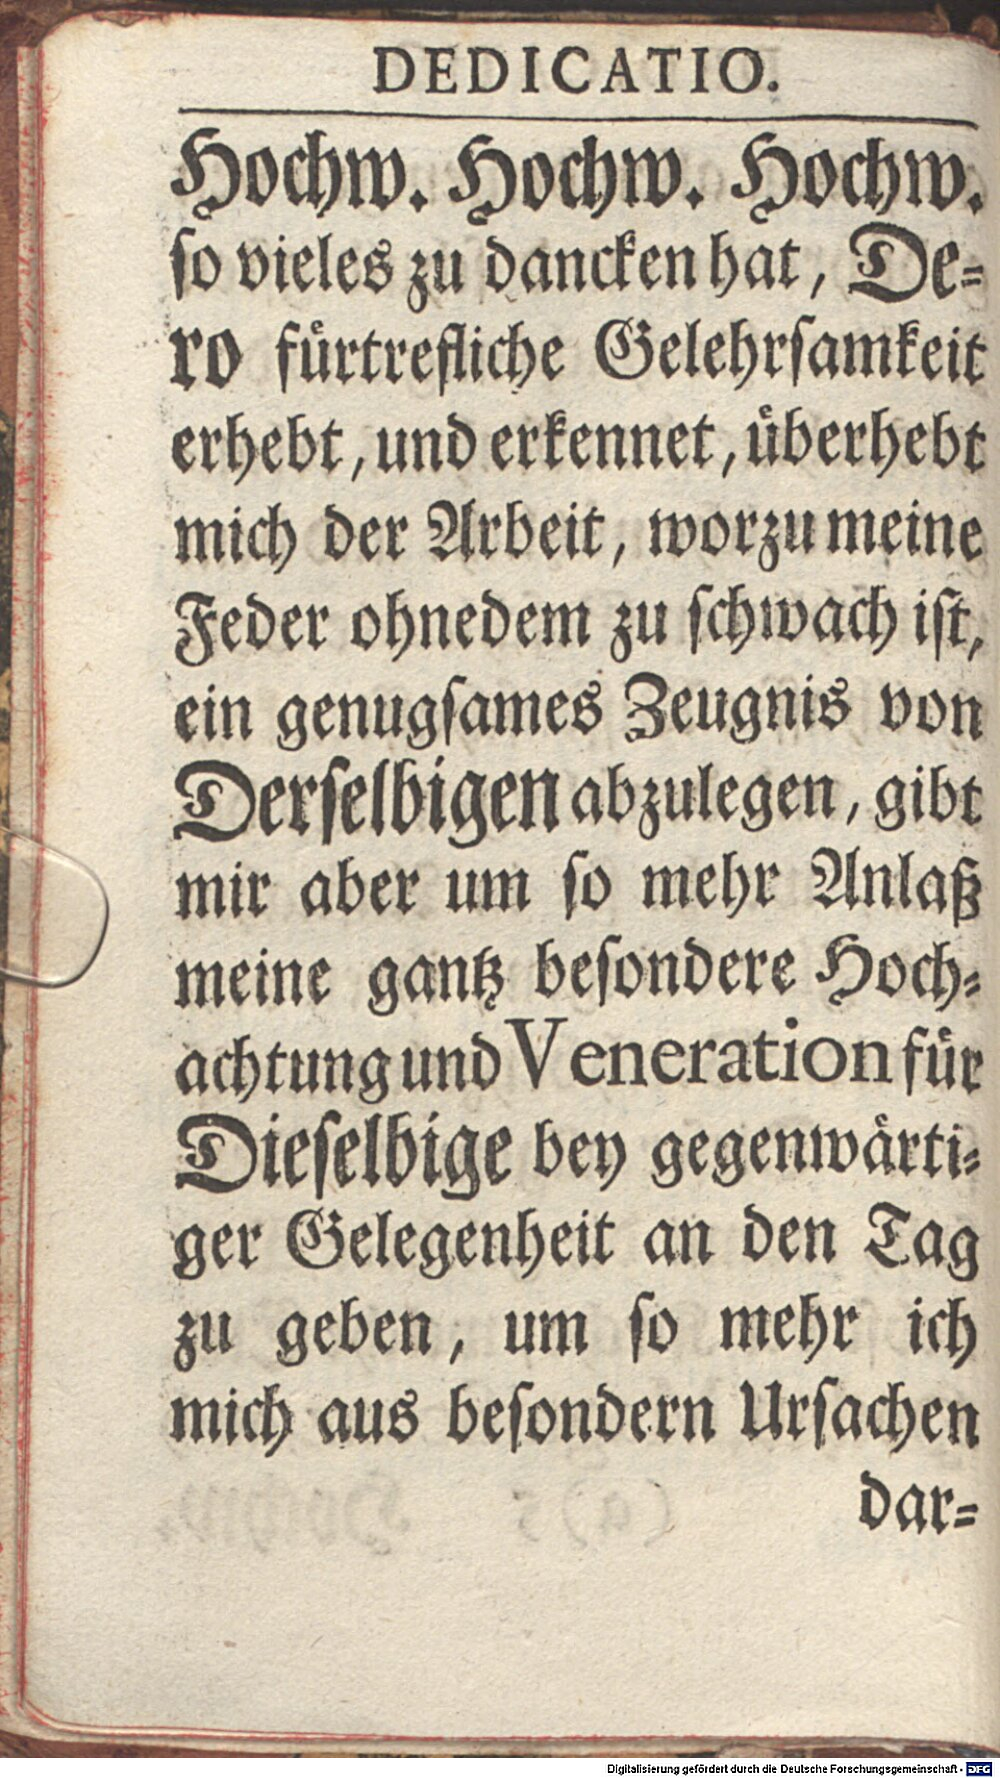 DEDICATIO.
Hochw. Hochw. Hochw.
ſo vieles zu dancken hat, De⸗
ro fuͤrtrefliche Gelehrſamkeit
erhebt, und erkennet, uͤberhebt
mich der Arbeit, worzu meine
Feder ohnedem zu ſchwach iſt,
ein genugſames Zeugnis von
Derſelbigen abzulegen, gibt
mir aber um ſo mehr Anlaß
meine gantz beſondere Hoch⸗
achtung und Veneration fuͤr
Dieſelbige bey gegenwaͤrti⸗
ger Gelegenheit an den Tag
zu geben, um ſo mehr ich
mich aus beſondern Urſachen
dar⸗
Digitalisierung gefördert durch die Deutsche Forschungsgemeinschaft - DFG